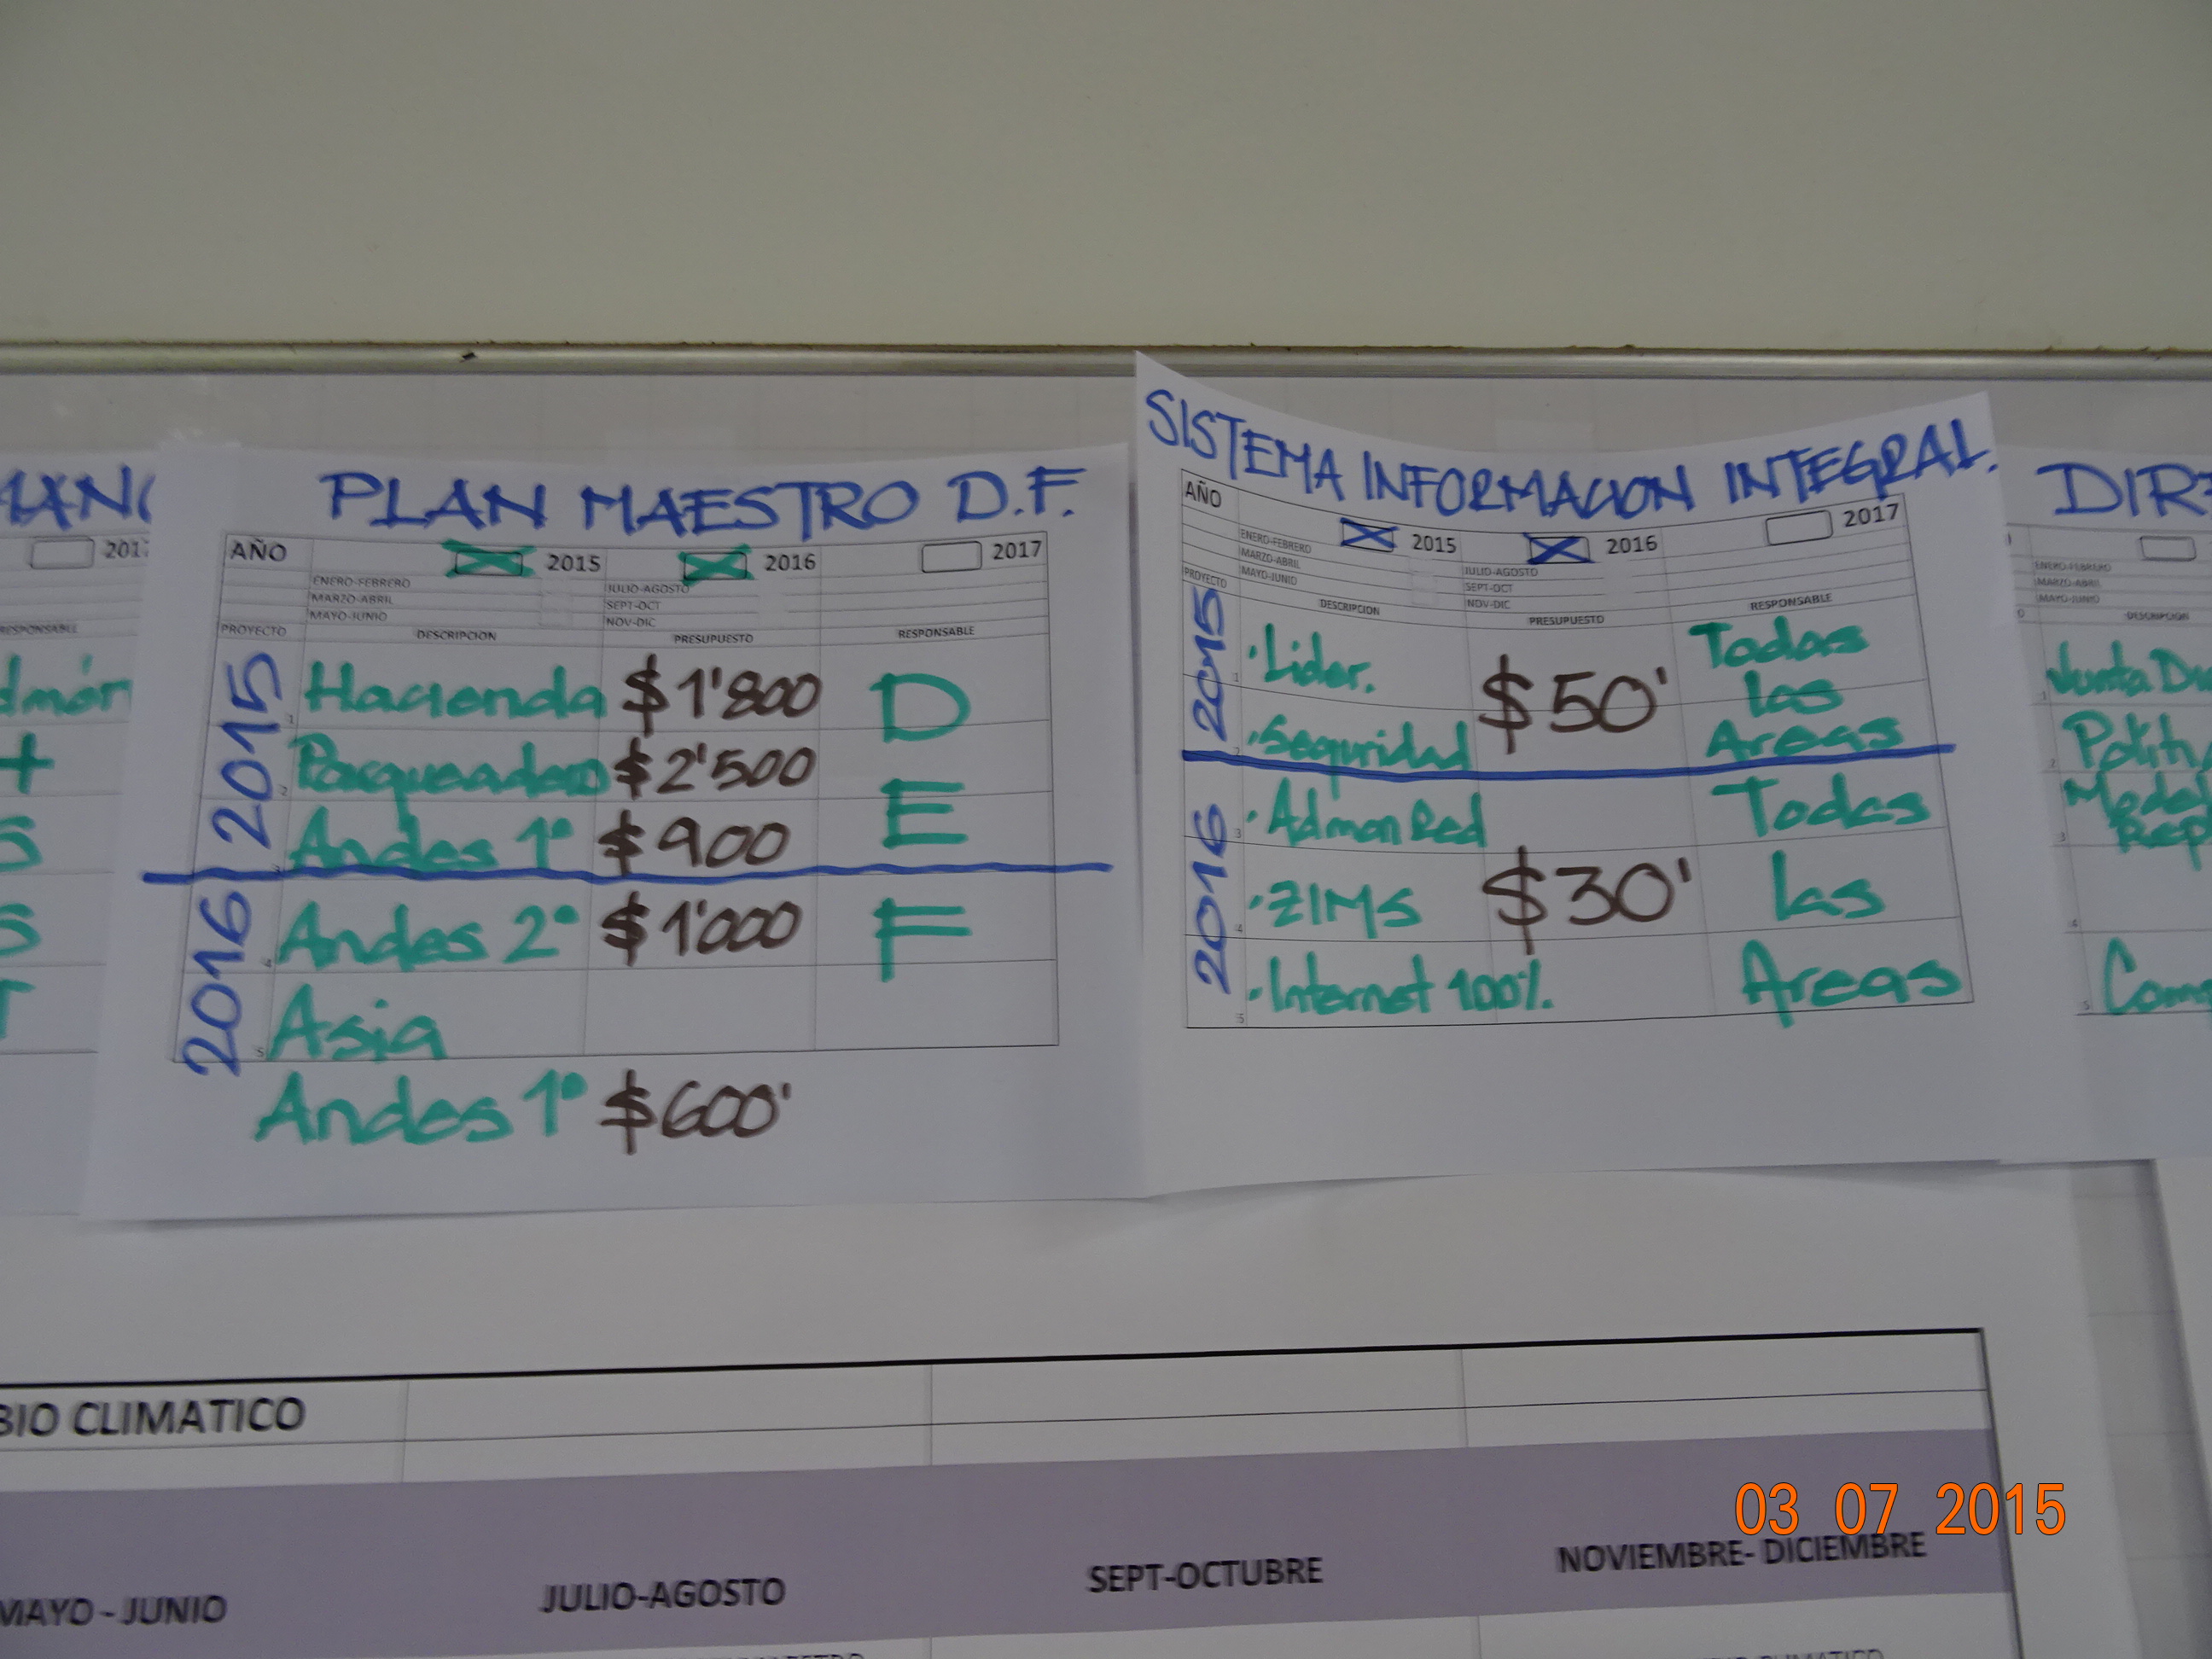 PLAN MAESTRO D.F.
AÑO 2015 2016 2017
ENERO-FEBRERO JULIO-AGOSTO
MARZO-ABRIL SEPT-OCT
MAYO-JUNIO NOV-DIC
PROYECTO DESCRIPCION PRESUPUESTO RESPONSABLE
2015
1 Hacienda $1'800 D
2 Parqueadero $2'500
3 Andes 1° $900 E
2016
4 Andes 2° $1'000 F
5 Asia
Andes 1° $600'
SISTEMA INFORMACION INTEGRAL.
AÑO 2015 2016 2017
ENERO-FEBRERO JULIO-AGOSTO
MARZO-ABRIL SEPT-OCT
MAYO-JUNIO NOV-DIC
PROYECTO DESCRIPCION PRESUPUESTO RESPONSABLE
2015
1 ·Lider. $50' Todas
las
2 ·Seguridad Areas
2016
3 ·Admon Red Todas
4 ·ZIMS $30' las
5 ·Internet 100%. Areas
RESPONSABLE
DIR
ENERO-FEBRERO
MARZO-ABRIL
MAYO-JUNIO
DESCRIPCION
1 Junta
2
3
4
5
BIO CLIMATICO
MAYO - JUNIO JULIO-AGOSTO SEPT-OCTUBRE NOVIEMBRE- DICIEMBRE
03 07 2015